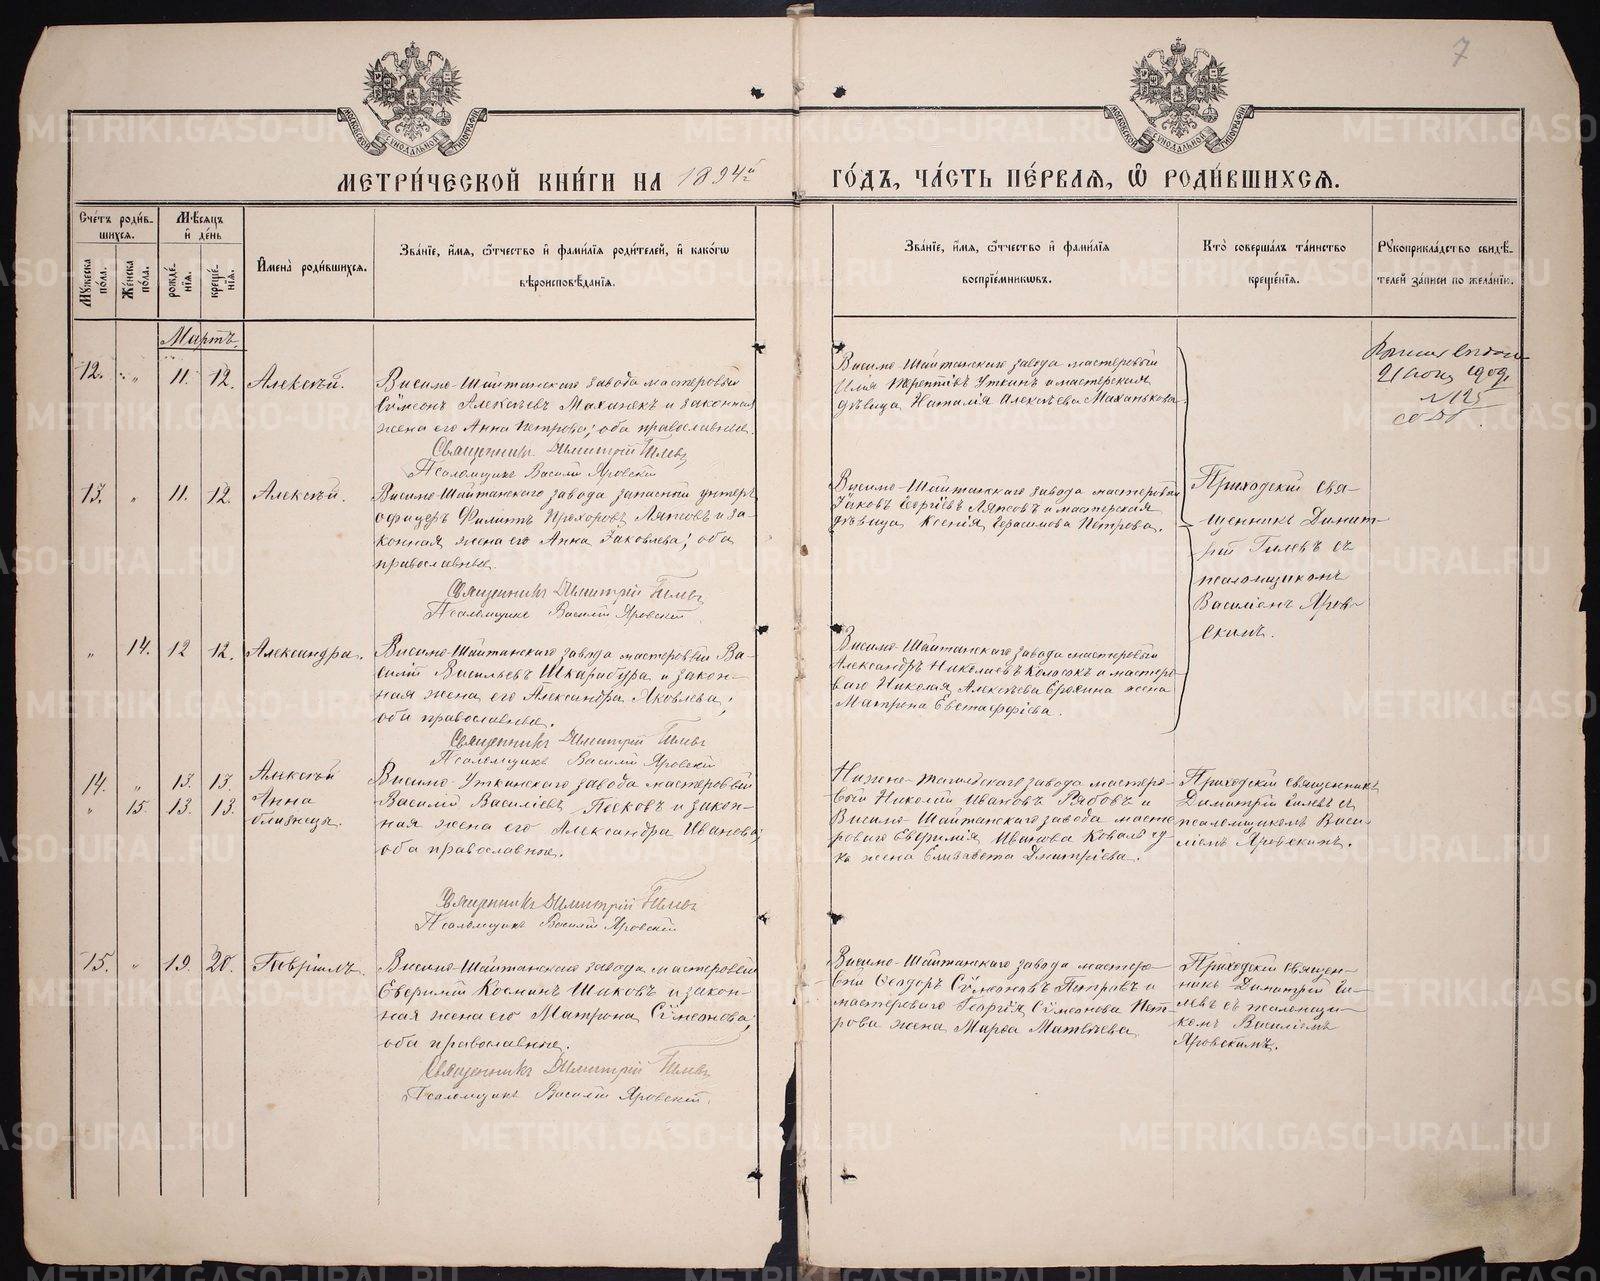 7
МЕТРИЧЕСКОЙ КНИГИ НА 1894й
ГОДЪ, ЧАСТЬ ПЕРВАЯ, Ѽ РОДИВШИХСЯ.
Счетъ родив-
шихся.
Мужеска пола.
Женска пола.
Мѣсяцъ
и день
рожде-
нія.
креще-
нія.
Имена родившихся.
Званіе, имя, ѿчество и фамилія родителей, и какогѡ
вѣроисповѣданія.
Званіе, имя, ѿчество и фамилія
воспріемниковъ.
Кто совершалъ таинство
крещенія.
Рукоприкладство свидѣ-
телей записи по желанію.
Мартъ
12. „ 11. 12. Алексѣй.
Висимо-Шайтанскаго завода мастеровый
Сѵмеонъ Алексѣевъ Маханекъ и законная
жена его Анна Петрова; оба православные.
Священникъ Димитрій Гилевъ
Псаломщикъ Василій Яровскій
Висимо-Шайтанскаго завода мастеровый
Илія Терентіевъ Уткинъ и мастерская
дѣвица Наталія Алексѣева Маханькова.
№ 125
13. „ 11. 12. Алексѣй.
Висимо-Шайтанскаго завода запасный унтеръ
офицеръ Филиппъ Прохоровъ Ляпсовъ и за-
конная жена его Анна Іаковлева; оба
православные.
Священникъ Димитрій Гилевъ
Псаломщикъ Василій Яровскій.
Висимо-Шайтанскаго завода мастеровый
Іаковъ Сергіевъ Ляпсовъ и мастерская
дѣвица Ксенія Герасимова Петрова.
Приходскій свя-
щенникъ Димит-
рій Гилевъ съ
псаломщикомъ
Василіемъ Яров-
скимъ.
„ 14. 12 12. Александра.
Висимо-Шайтанскаго завода мастеровый Ва-
силій Васильевъ Шкарабура и закон-
ная жена его Александра Яковлева;
оба православные.
Священникъ Димитрій Гилевъ
Псаломщикъ Василій Яровскій
Висимо-Шайтанскаго завода мастеровый
Александръ Николаевъ Колосокъ и мастеро-
ваго Николая Алексѣева жена
Матрона Евстафіева.
14. „ 13. 13. Алексѣй
„ 15. 13. 13. Анна
близнецы.
Висимо-Уткинскаго завода мастеровый
Василій Василіевъ Песковъ и закон-
ная жена его Александра Иванова;
оба православные.
Священникъ Димитрій Гилевъ
Псаломщикъ Василій Яровскій
Нижне-Тагильскаго завода мастеро-
вый Николай Ивановъ Рябовъ и
Висимо-Шайтанскаго завода масте-
роваго Евфимія Иванова
жена Елизавета Дмитріева.
Приходскій священникъ
Димитрій Гилевъ съ
псаломщикомъ Васи-
ліемъ Яровскимъ.
15. „ 19. 20. Гавріилъ.
Висимо-Шайтанскаго завода мастеровый
Евфимій Косминъ Шиковъ и закон-
ная жена его Матрона Сѵмеонова;
оба православные.
Священникъ Димитрій Гилевъ
Псаломщикъ Василій Яровскій.
Висимо-Шайтанскаго завода мастеро-
вый Ѳеодоръ Сѵмеоновъ Петровъ и
мастероваго Георгія Сѵмеонова Пет-
рова жена Марѳа Матвѣева
Приходскій священ-
никъ Димитрій Ги-
левъ съ псаломщи-
комъ Василіемъ
Яровскимъ.
METRIKI.GASO-URAL.RU